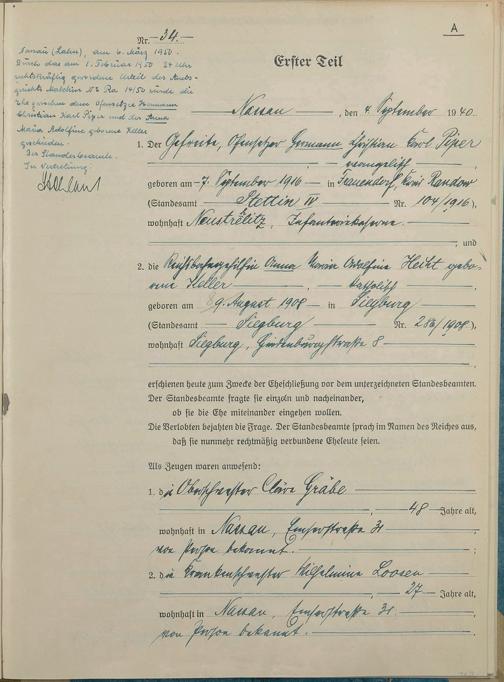 A
Nr. 34.
Nassau (Lahn), am 6. März 1950.
Durch das am 1. Februar 1950 24 Uhr
rechtskräftig gewordene Urteil des Amts-
gerichts Malchin 53 Ra 14/50 wurde die
Ehe zwischen dem Ofensetzer Hermann
Christian Karl Piper und der Anna
Maria Adolfine geborene Heller
geschieden.
Der Standesbeamte.
In Vertretung.
Erster Teil
Nassau, den 4. September 1940.
1. Der Gefreite, Ofensetzer Hermann Christian Karl Piper
evangelisch
geboren am 7. September 1916 in Frauendorf, Kreis Randow
(Standesamt Stettin IV Nr. 104/1916),
wohnhaft Neustrelitz, Infanteriekaserne.
, und
2. die Anna Maria Adolfine Hecht gebo-
rene Heller, katholisch
geboren am 9. August 1908 in Siegburg
(Standesamt Siegburg Nr. /1908),
wohnhaft Siegburg, Hindenburgstraße 8
erschienen heute zum Zwecke der Eheschließung vor dem unterzeichneten Standesbeamten.
Der Standesbeamte fragte sie einzeln und nacheinander,
ob sie die Ehe miteinander eingehen wollen.
Die Verlobten bejahten die Frage. Der Standesbeamte sprach im Namen des Reiches aus,
daß sie nunmehr rechtmäßig verbundene Eheleute seien.
Als Zeugen waren anwesend:
1. die Oberschwester Cläre Gräbe
, 48 Jahre alt,
wohnhaft in Nassau, Emserstraße 31
von Person bekannt.
2. die Krankenschwester Wilhelmine Loosen
, 27 Jahre alt,
wohnhaft in Nassau, Emserstraße 31.
von Person bekannt.